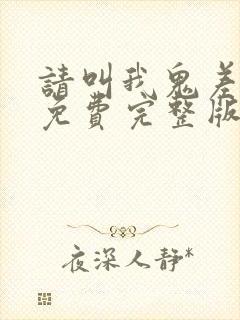 請叫我鬼差
免費完整版
夜深人静*